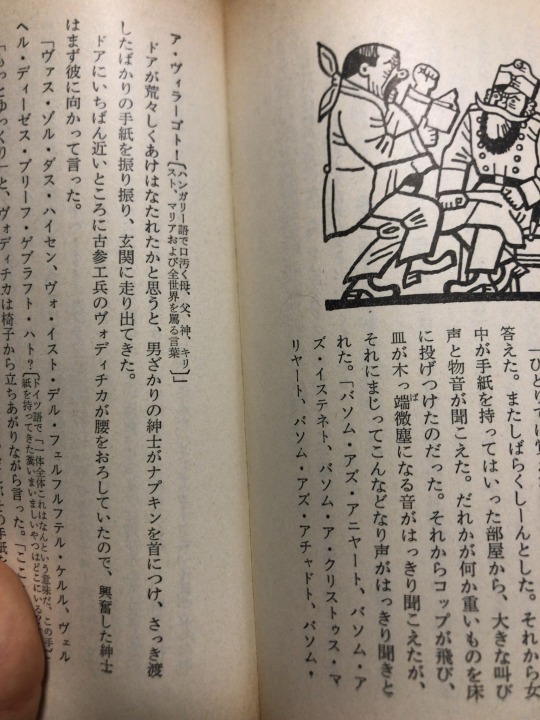 「ひとりでは
答えた。またしばらくしーんとした。それから女
中が手紙を持ってはいった部屋から、大きな叫び
声と物音が聞こえた。だれかが何か重いものを床
に投げつけたのだった。それからコップが飛び、
皿が木っ端微塵になる音がはっきり聞こえたが、
ぱ
それにまじってこんなどなり声がはっきり聞きと
れた。「バソム・アズ・アニャート、バソム・ア
ズ・イステネト、バソム・ア・クリストゥス・マ
リャート、バソム・アズ・アチャドト、バソム・
ア・ヴィラーゴト！
〔ハンガリー語で口汚く母、父、神、キリ
スト、マリアおよび全世界を罵る言葉〕」
ドアが荒々しくあけはなたれたかと思うと、男ざかりの紳士がナプキンを首につけ、さっき渡
したばかりの手紙を振り振り、玄関に走り出てきた。
ドアにいちばん近いところに古参工兵のヴォディチカが腰をおろしていたので、興奮した紳士
はまず彼に向かって言った。
「ヴァス・ゾル・ダス・ハイセン、ヴォ・イスト・デル・フェルフルフテル・ケルル、ヴェル
ヘル・ディーゼス・ブリーフ・ゲブラフト・ハト？
〔ドイツ語で「一体全体これはなんという意味だ、この手
紙を持ってきた糞いまいましいやつはどこにいる
「もっとゆっくり」と、ヴォディチカは椅子から立ちあがりながら言った。「ここ